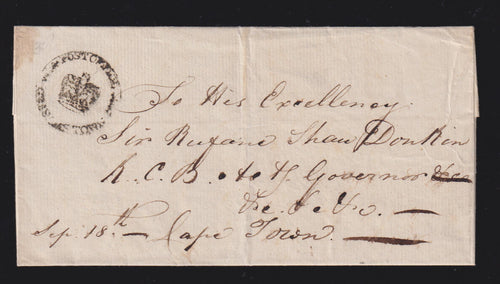 POST OFFICE
To His Excellency
Sir Rufane Shaw Donkin
K. C. B. Actg Governor &c
&c &c &c. —
Sep. 18th — Cape Town. —